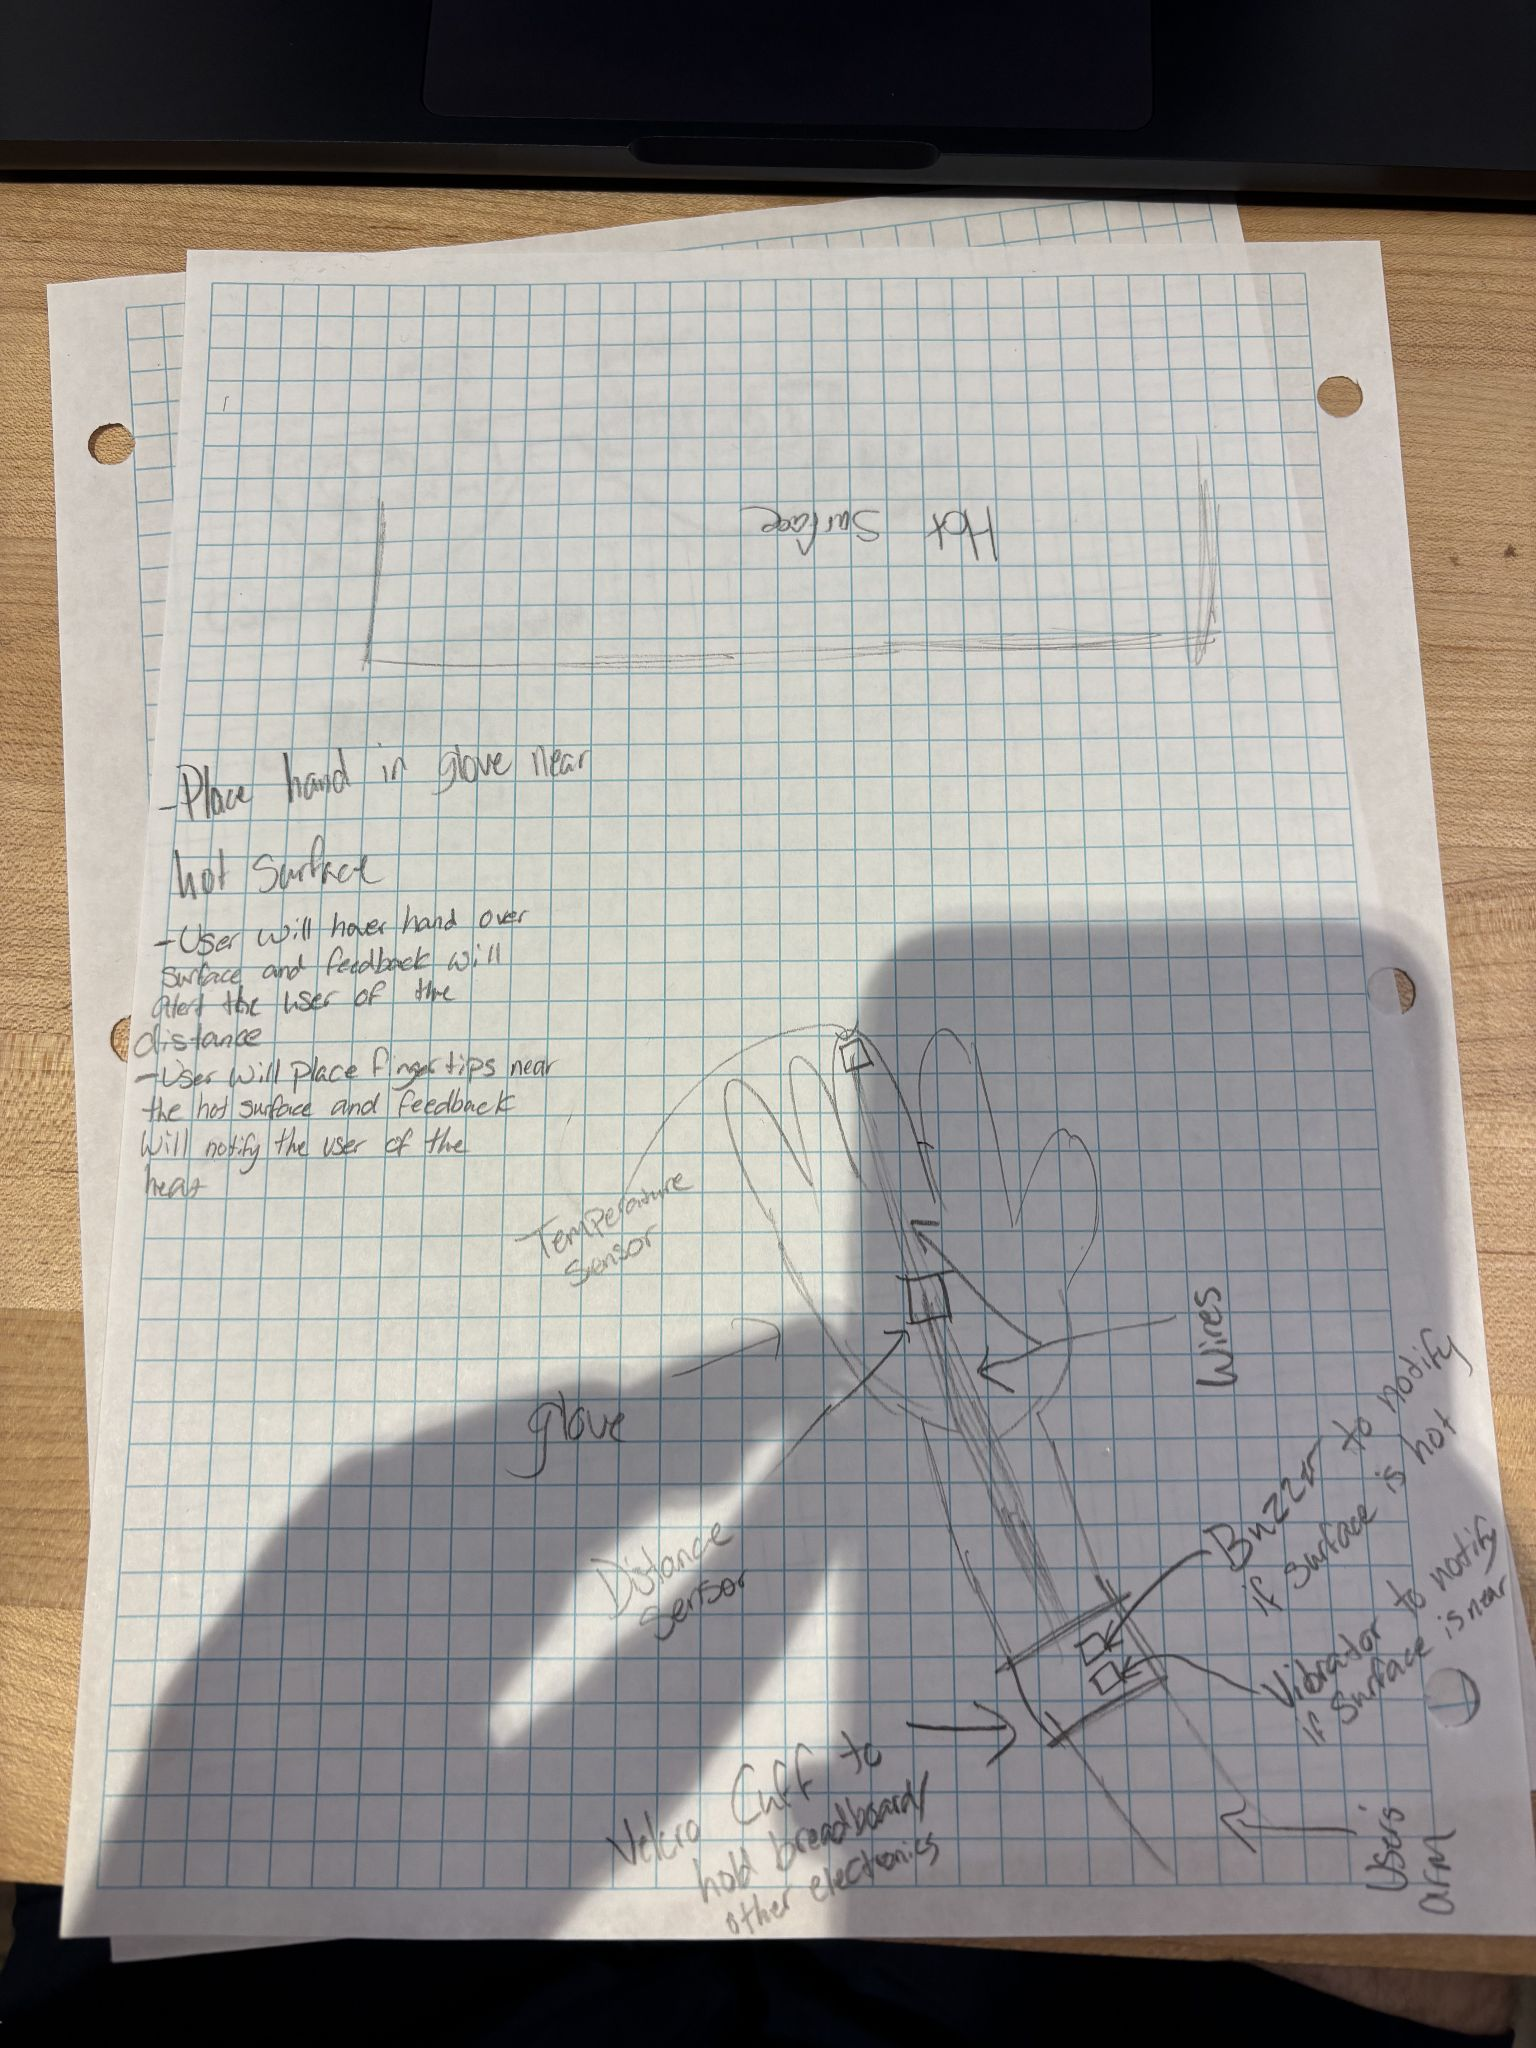 Hot Surface
-Place hand in glove near
hot surface
-User will hover hand over
surface and feedback will
alert the user of the
distance
-User will place fingertips near
the hot surface and feedback
will notify the user of the
heat
Temperature
Sensor
glove
Distance
Sensor
Wires
Buzzer to notify
if surface is hot
Vibrator to notify
if surface is near
Velcro Cuff to
hold breadboard/
other electronics
Users
arm